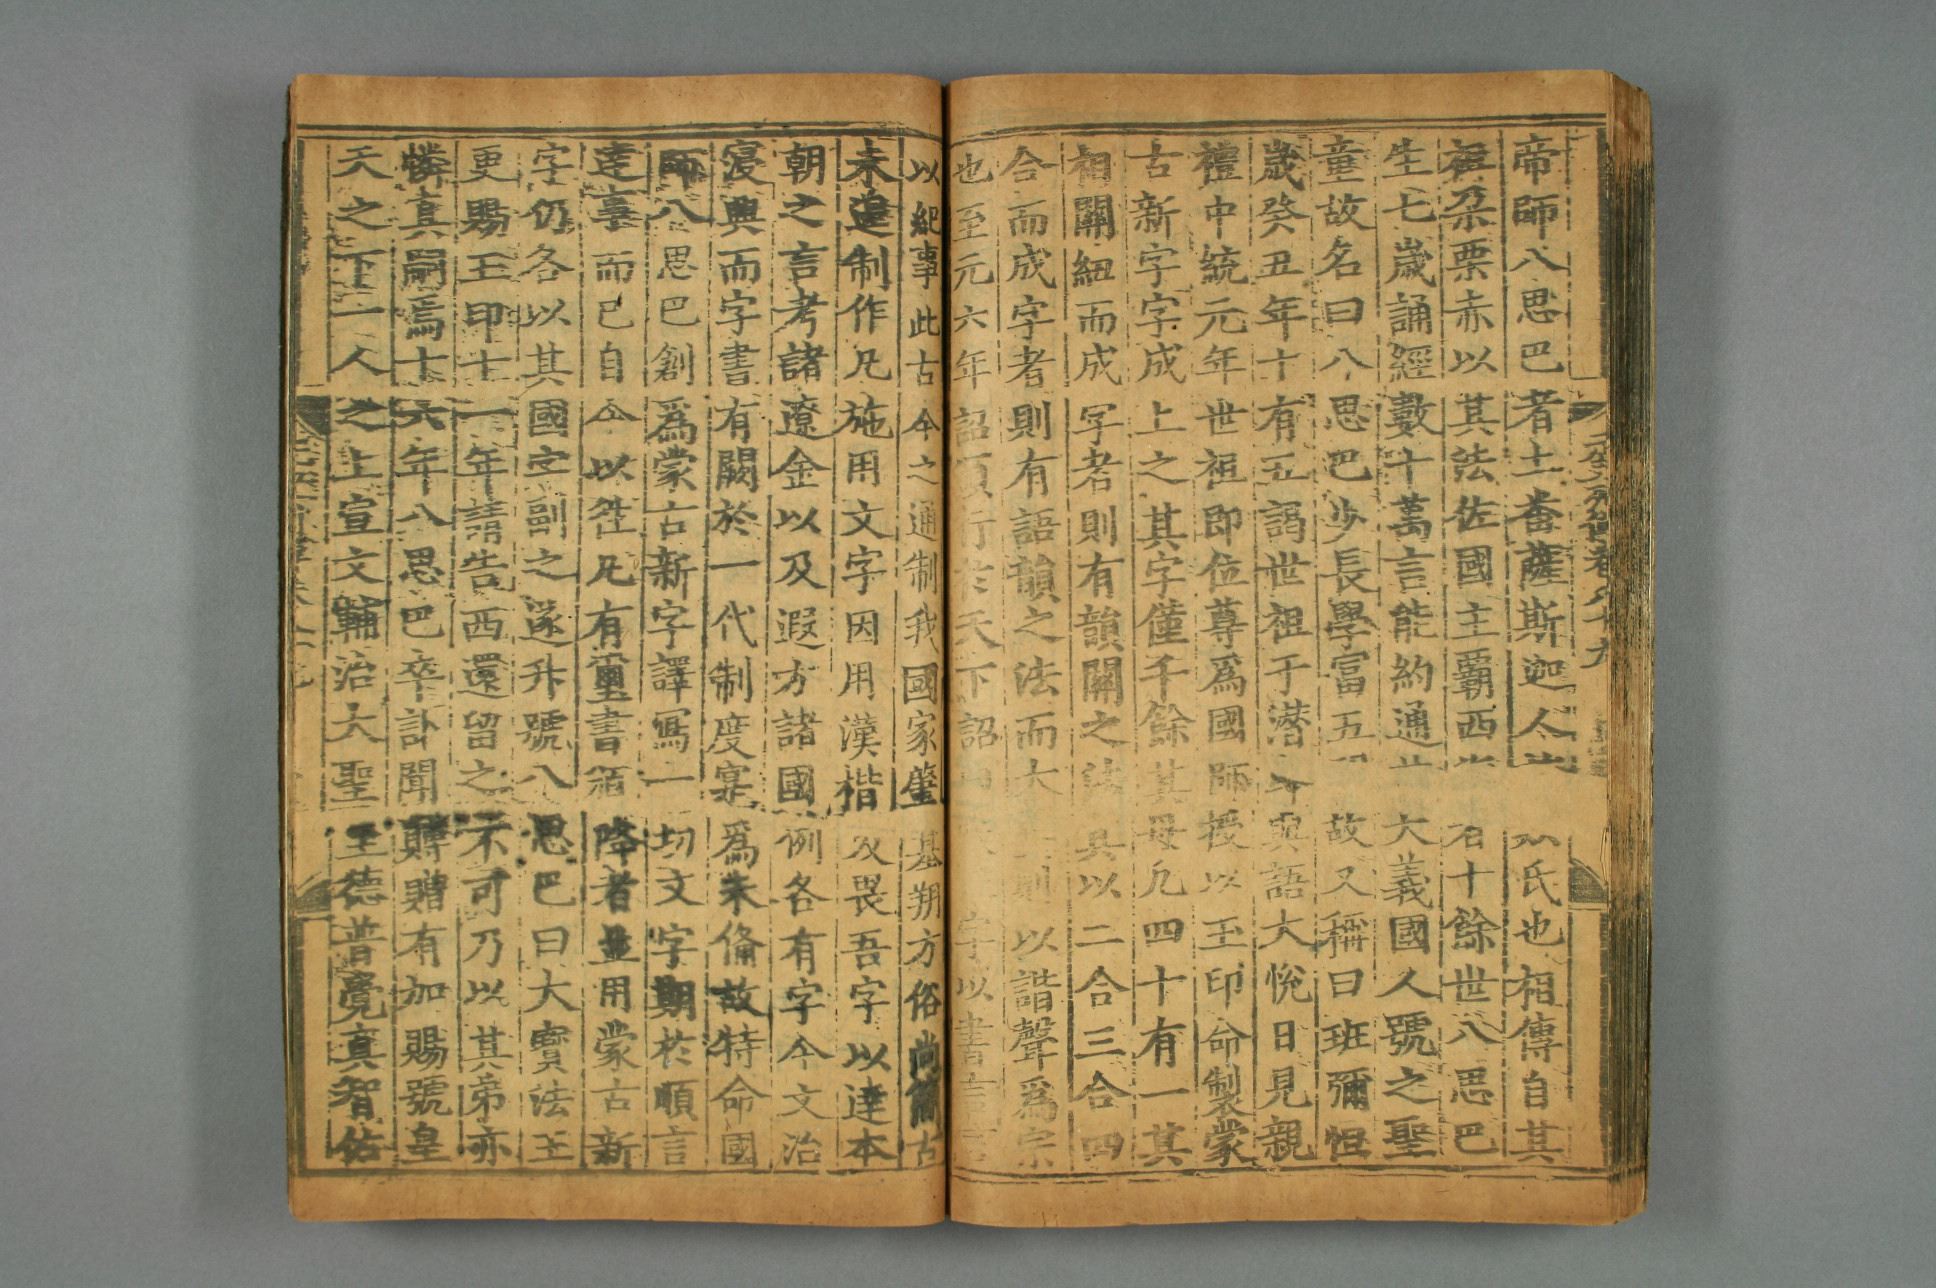 帝師八思巴者土番薩斯迦人 氏也相傳自其
祖朶栗赤以其法佐國主霸西 十餘世八思巴
生七歲誦經數十萬言能約通 大義國人號之聖
童故名曰八思巴少長學富五 故又稱曰班彌怛
歲癸丑年十有五謁世祖于潛 與語大悅日見親
禮中統元年世祖即位尊爲國師授以玉印命製蒙
古新字字成上之其字僅千餘其母凡四十有一其
相關紐而成字者則有韻關之法其以二合三合四
合而成字者則有語韻之法而大 則以諧聲爲宗
也至元六年詔頒行於天下詔 字以書言
以紀事此古今之通制我國家肇基朔方俗尚簡古
未遑制作凡施用文字因用漢楷及畏吾字以達本
朝之言考諸遼金以及遐方諸國例各有字今文治
寖興而字書有闕於一代制度寔爲未俻故特命國
師八思巴創爲蒙古新字譯寫一切文字期於順言
達事而已自今以徃凡有璽書頒降者並用蒙古新
字仍各以其國字副之遂升號八思巴曰大寳法王
更賜玉印十一年請告西還留之不可乃以其弟亦
憐真嗣焉十六年八思巴卒訃聞賻贈有加賜號皇
天之下一人之上宣文輔治大聖至德普覺真智佑